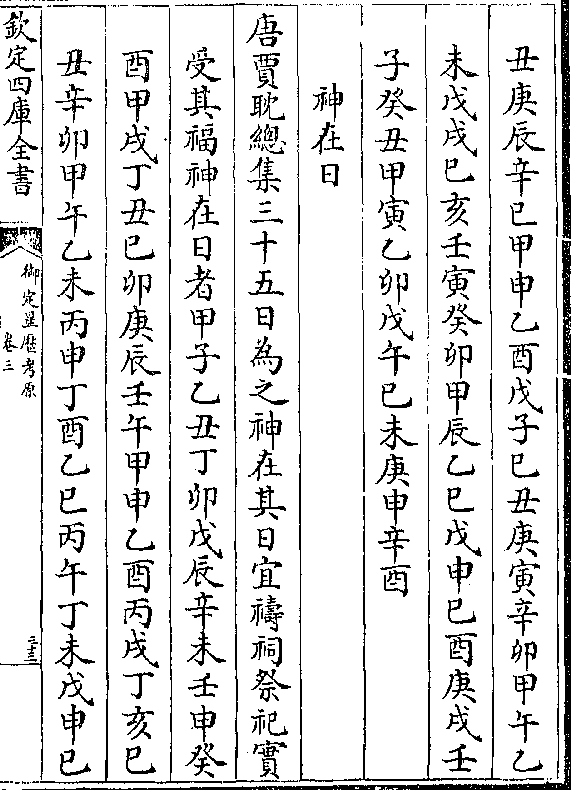 丑庚辰辛巳甲申乙酉戊子巳丑庚寅辛卯甲午乙
未戊戌巳亥壬寅癸卯甲辰乙巳戊申巳酉庚戌壬
子癸丑甲寅乙卯戊午巳未庚申辛酉
神在日
唐賈耽總集三十五日為之神在其日宜禱祠祭祀實
受其福神在日者甲子乙丑丁卯戊辰辛未壬申癸
酉甲戌丁丑巳卯庚辰壬午甲申乙酉丙戌丁亥巳
丑辛卯甲午乙未丙申丁酉乙巳丙午丁未戊申巳
欽定四庫全書
御定星厯考原
卷三
三十三